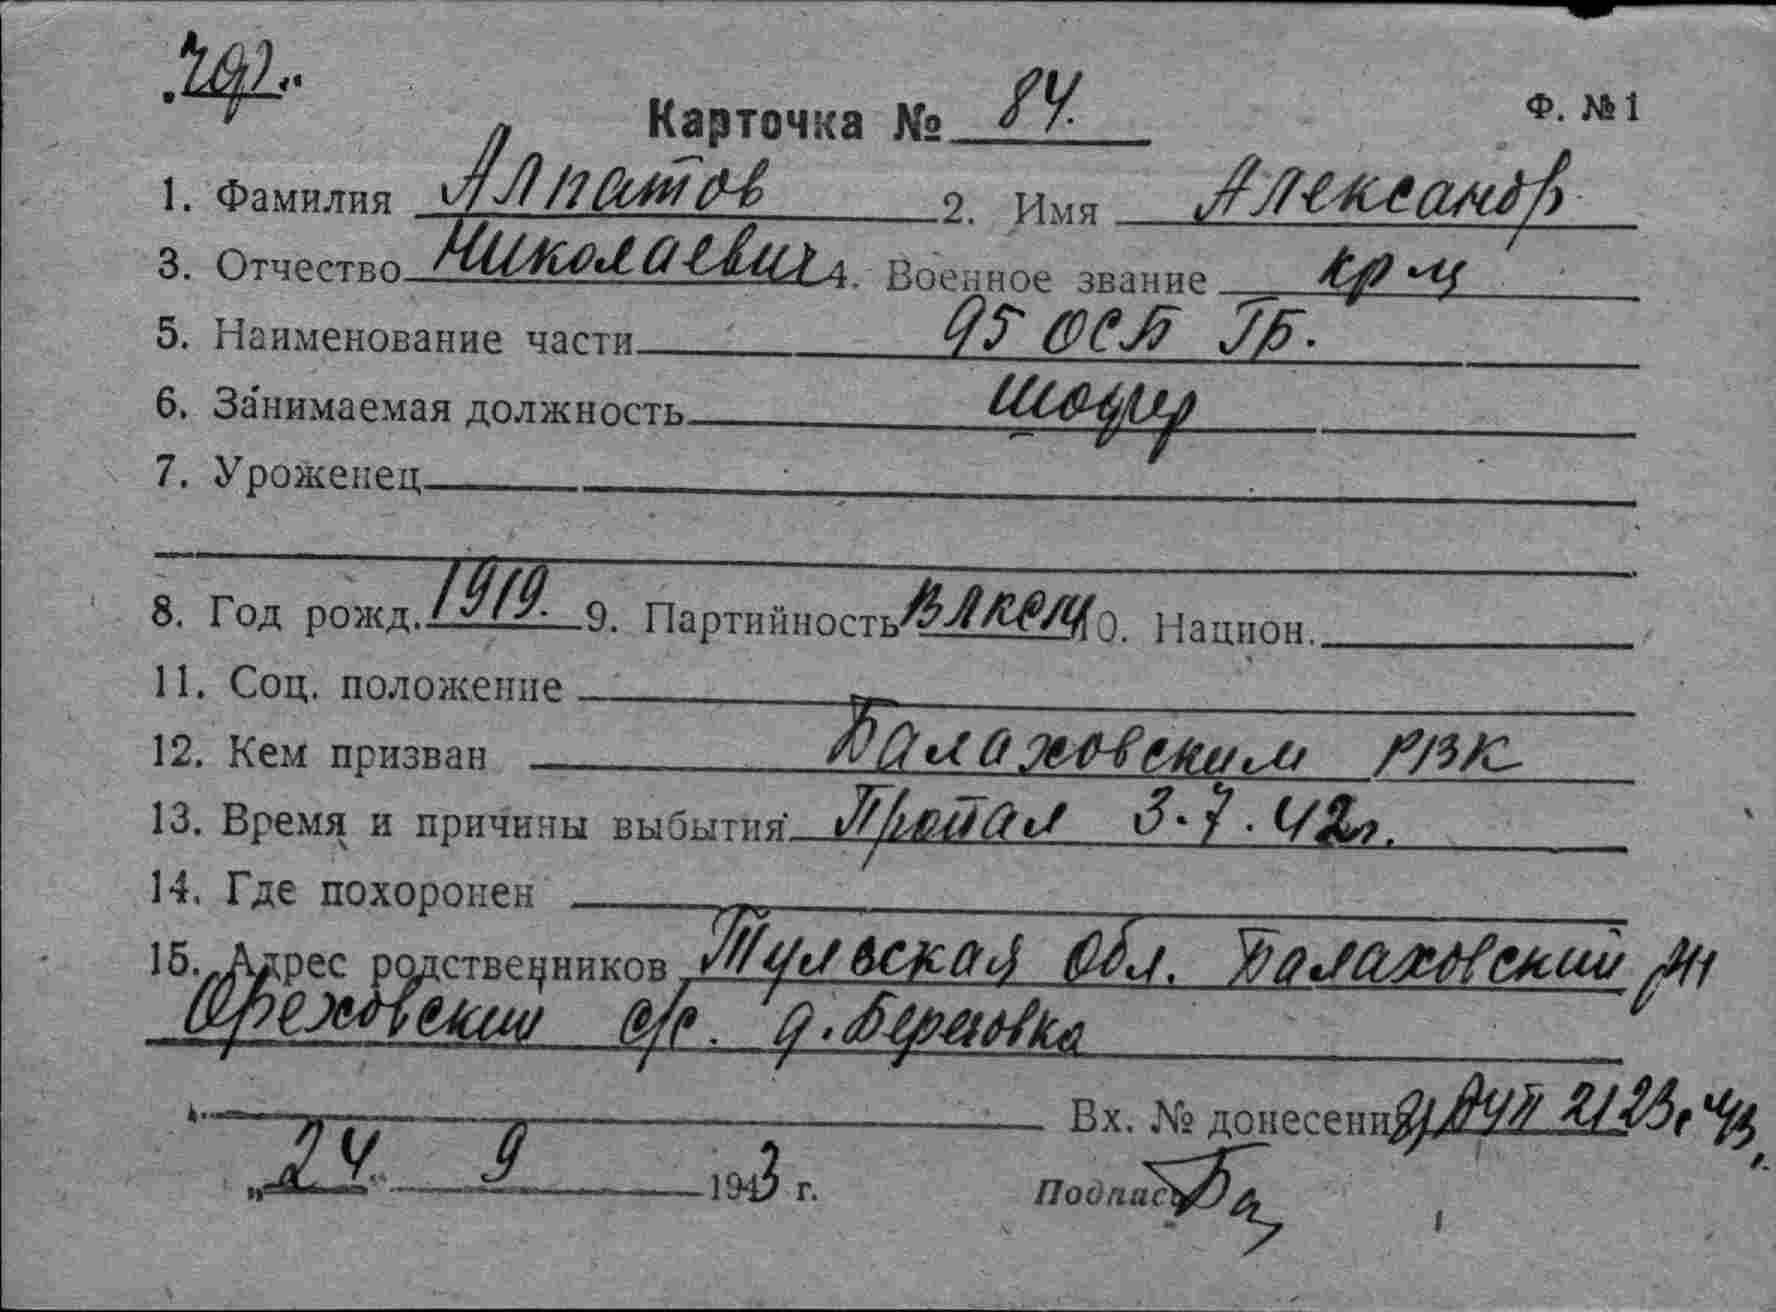 Карточка № 84. Ф. № 1
1. Фамилия Алпатов 2. Имя Александр
3. Отчество Николаевич 4. Военное звание кр-ц
5. Наименование части 95 ОСБ ГБ.
6. Занимаемая должность шофер
7. Уроженец
8. Год рожд. 1919. 9. Партийность ВЛКСМ 10. Национ.
11. Соц. положение
12. Кем призван Балаховским РВК
13. Время и причины выбытия Пропал 3.7.42г.
14. Где похоронен
15. Адрес родственников Тульская обл. Балаховский
Ореховский с/с. д.
Вх. № донесения 2123с 43
„24“ 9 1943 г. Подпись